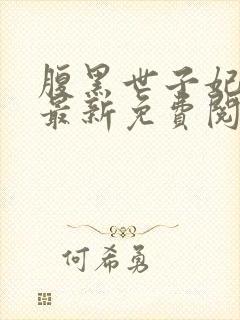 腹黑世子妃
最新免費閱
何希勇